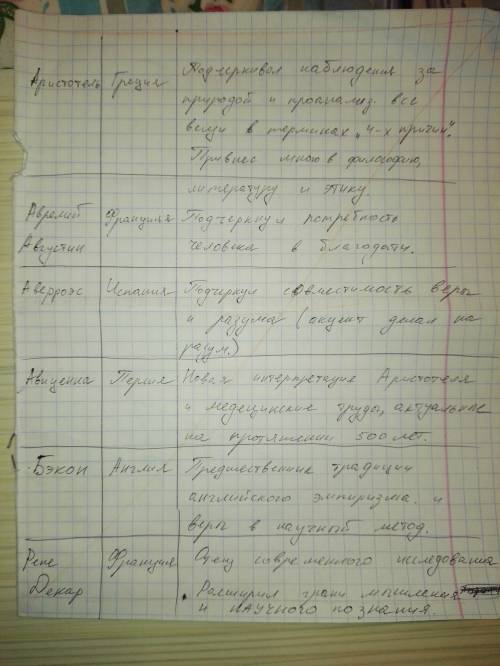 Подчеркивал наблюдения за
Аристотель Греция природой и проанализ. все
вещи в терминах „4-х причин".
Привнес много в философию,
литературу и этику.
Аврелий Франция Подчеркнул потребность
Августин человека в благодати.
Аверроэс Испания Подчеркнул совместимость веры
и разума (акцент делал на
разум.)
Авиценна Персия Новая интерпретация Аристотеля
и медецинские труды, актуальные
на протяжении 500 лет.
Бэкон Англия Предшественник традиции
английского эмпиризма и
веры в научный метод.
Рене Франция Отец современного исследования
Декар Расширил грани мышления
и научного познания.